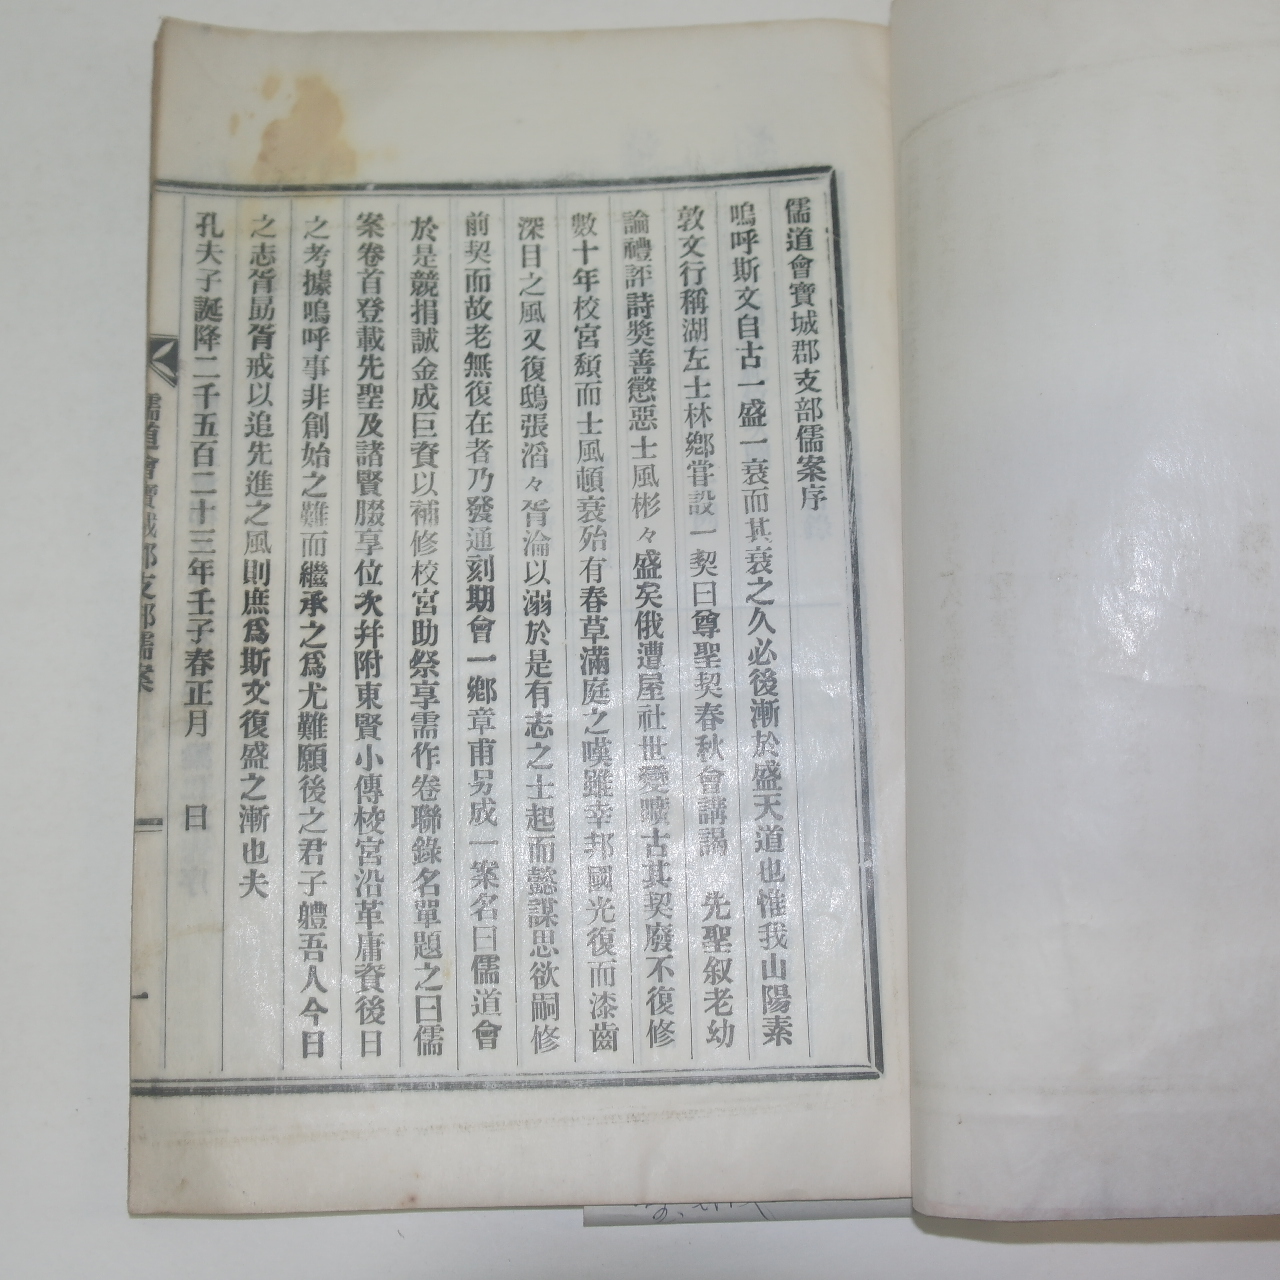 儒道會寶城郡支部儒案序
嗚呼斯文自古一盛一衰而其衰之久必後漸於盛天道也惟我山陽素
敦文行稱湖左士林鄉嘗設一契曰尊聖契春秋會講謁　先聖叙老幼
論禮評詩獎善懲惡士風彬々盛矣俄遭屋社世變曠古其契廢不復修
數十年校宮頹而士風頓衰殆有春草滿庭之嘆雖幸邦國光復而漆齒
深目之風又復鴟張滔々胥淪以溺於是有志之士起而懿謀思欲嗣修
前契而故老無復在者乃發通刻期會一鄉章甫另成一案名曰儒道會
於是競捐誠金成巨資以補修校宮助祭享需作卷聯錄名單題之曰儒
案卷首登載先聖及諸賢腏享位次幷附東賢小傳校宮沿革庸資後日
之考據嗚呼事非創始之難而繼承之爲尤難願後之君子軆吾人今日
之志胥勗胥戒以追先進之風則庶爲斯文復盛之漸也夫
孔夫子誕降二千五百二十三年壬子春正月　　日
儒道會寶城郡支部儒案
一